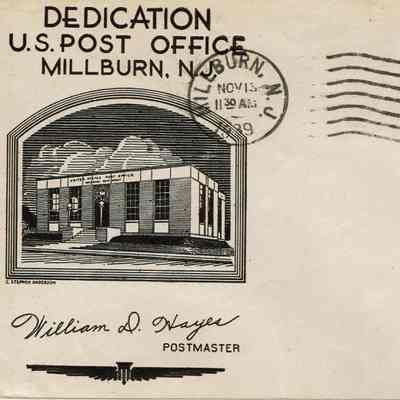 DEDICATION
U.S. POST OFFICE
MILLBURN, N.J.
MILLBURN, N.J.
NOV 13
11 30 AM
1939
UNITED STATES POST OFFICE
C. STEPHEN ANDERSON
William D. Hayes
POSTMASTER